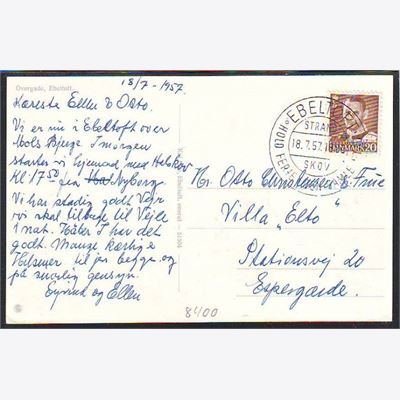 Overgade, Ebeltoft
18/7 - 1957
Kæreste Ellen & Otto.
Vi er nu i Ebeltoft over
Mols Bjerge I morgen
starter vi hjemad med Halskov
Kl 17 50 fra Nyborg
Vi har stadig godt Vejr
vi skal tilbage til Vejle
i nat. Håber I har det
godt. Mange kærlige
Hilsner til jer begge og
på snarlig gensyn.
Eyvind og Ellen
EBELTOFT
STRAND
18.7.57
SKOV
HOLD FERIE
DANMARK 20
Hr. Otto Christensen & Frue
Villa "Elto"
Stationsvej 20
Espergærde.
8400